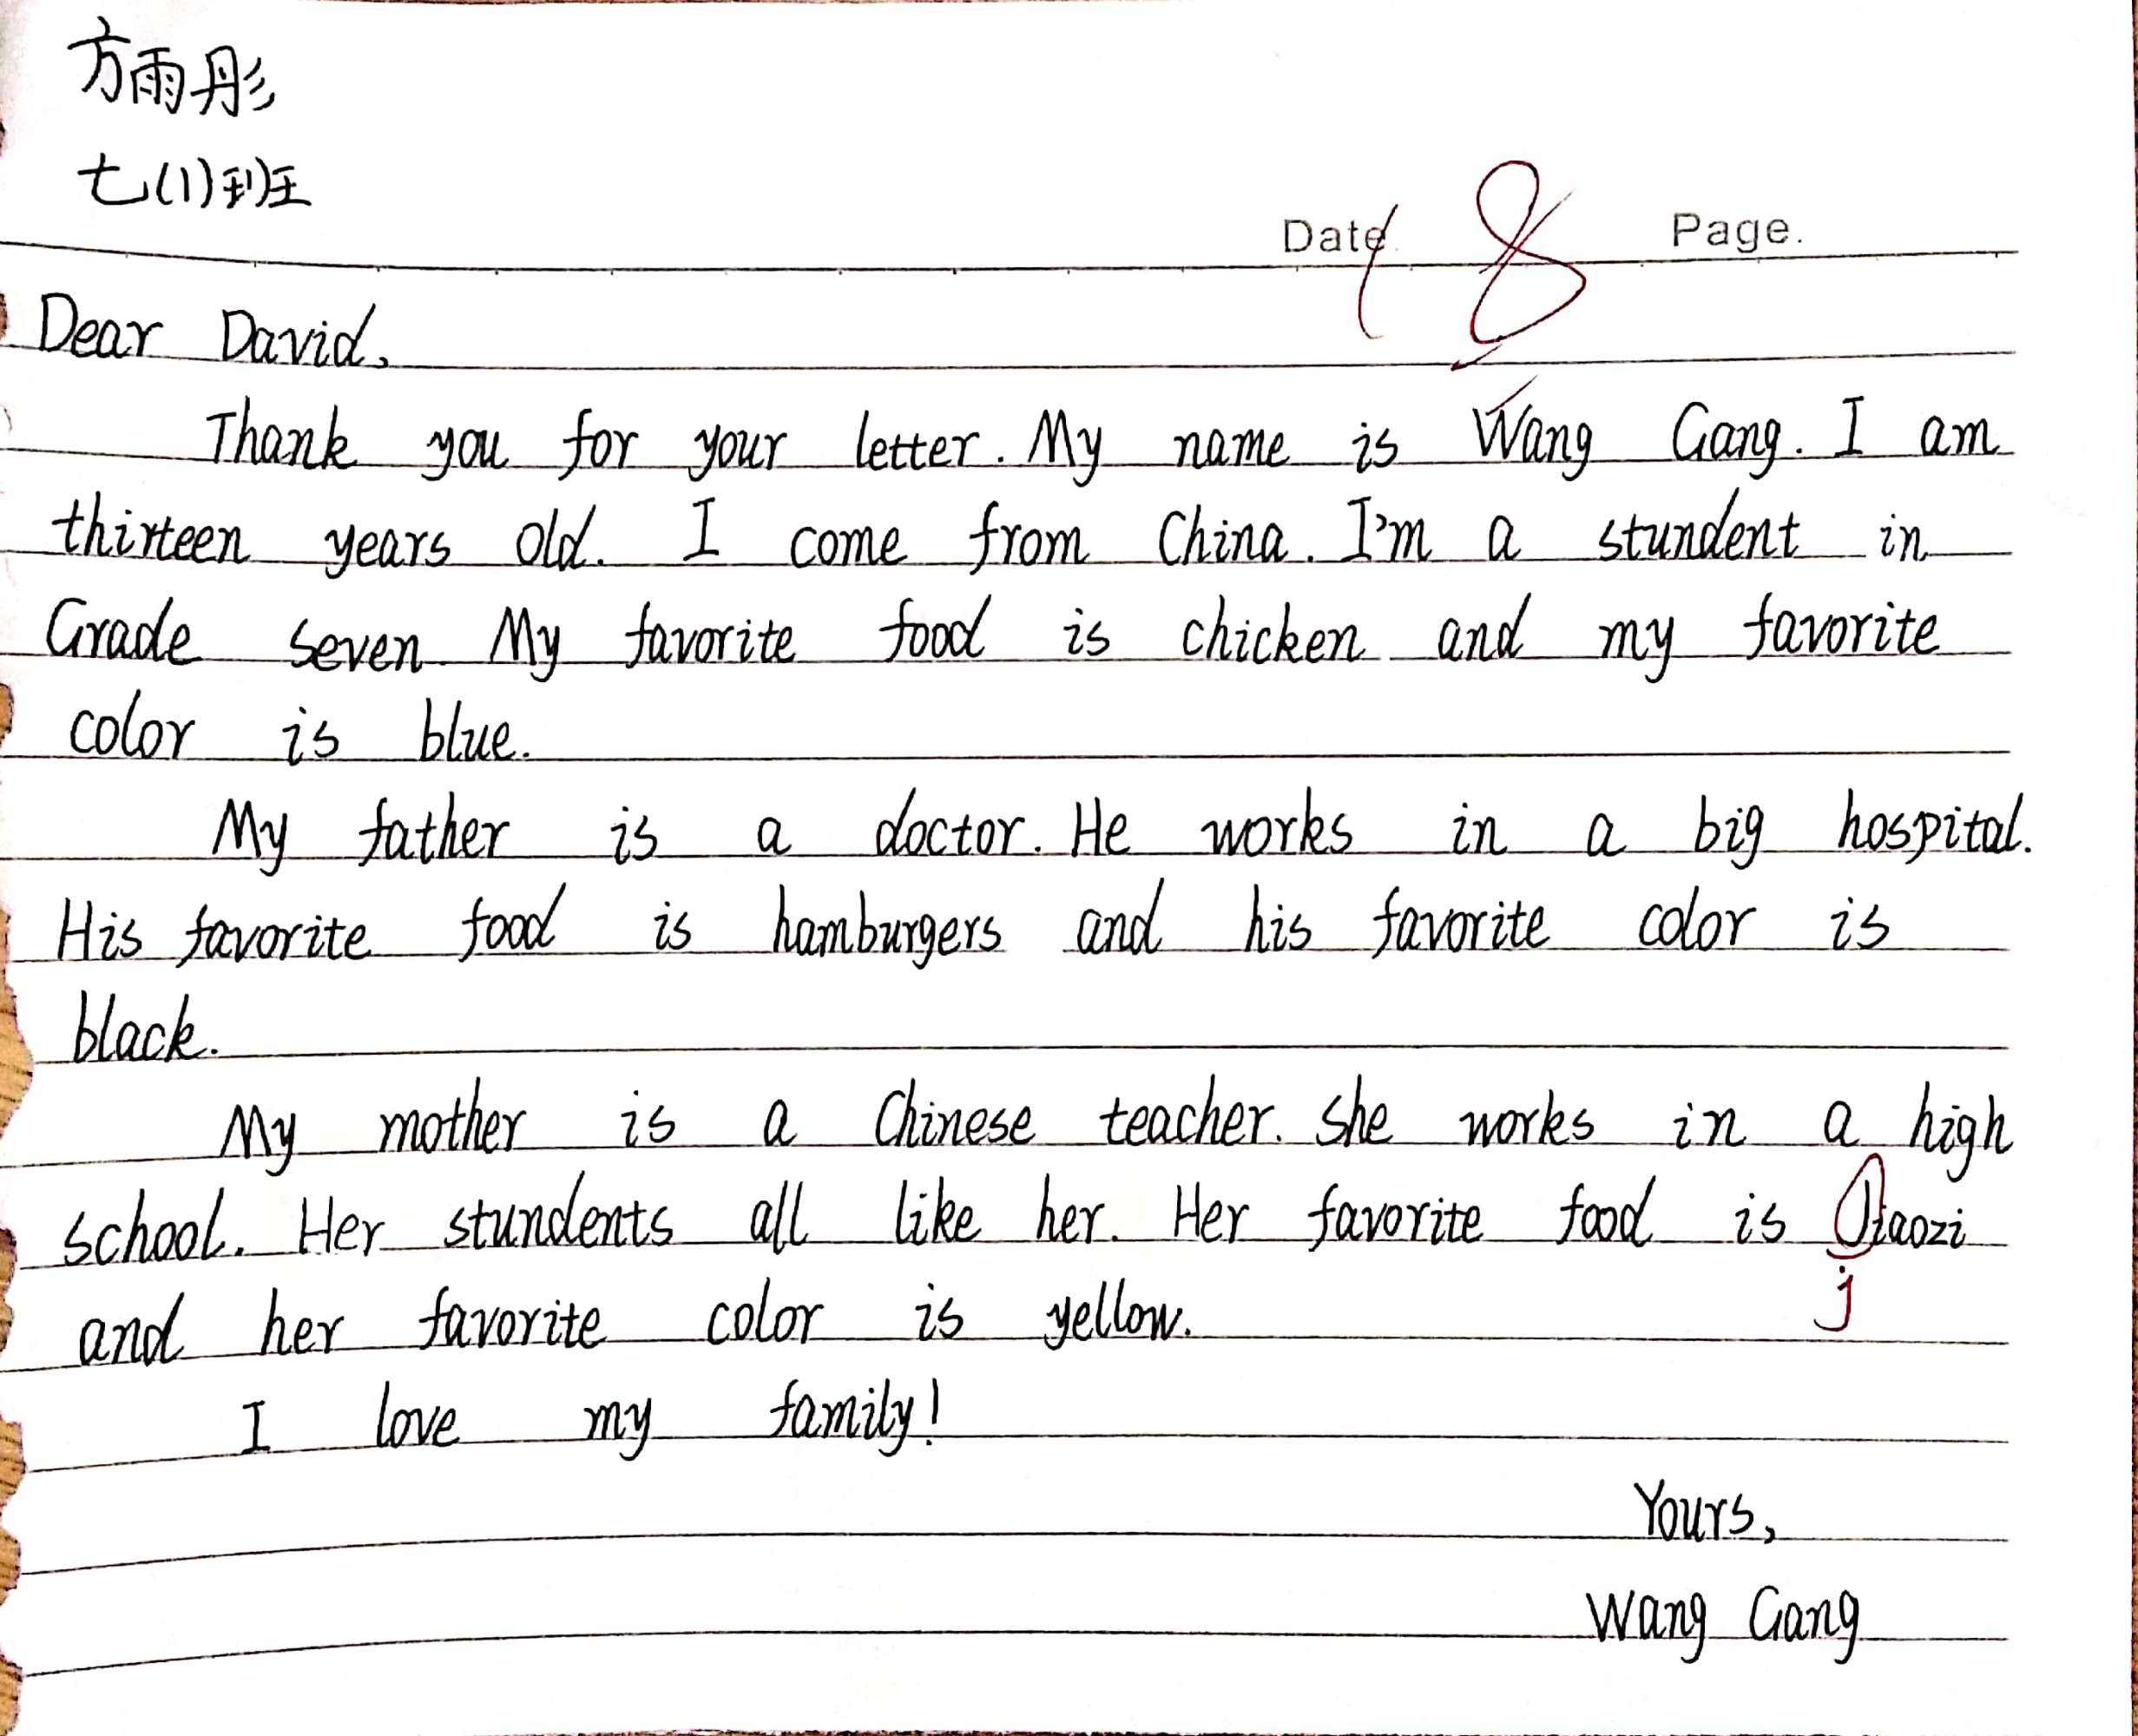 方雨彤
七(1)班
Date. 18 Page.
Dear David,
Thank you for your letter. My name is Wang Gang. I am
thirteen years old. I come from China. I'm a stundent in
Grade seven My favorite food is chicken and my favorite
color is blue.
My father is a doctor. He works in a big hospital.
His favorite food is hamburgers and his favorite color is
black.
My mother is a Chinese teacher. She works in a high
school. Her stundents all like her. Her favorite food is Jiaozi
j
and her favorite color is yellow.
I love my family!
Yours,
Wang Gang